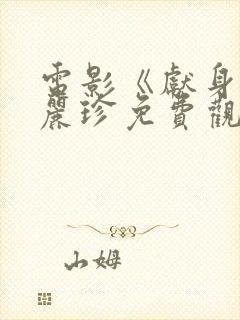 電影《獻身
麗珍免費觀
山姆